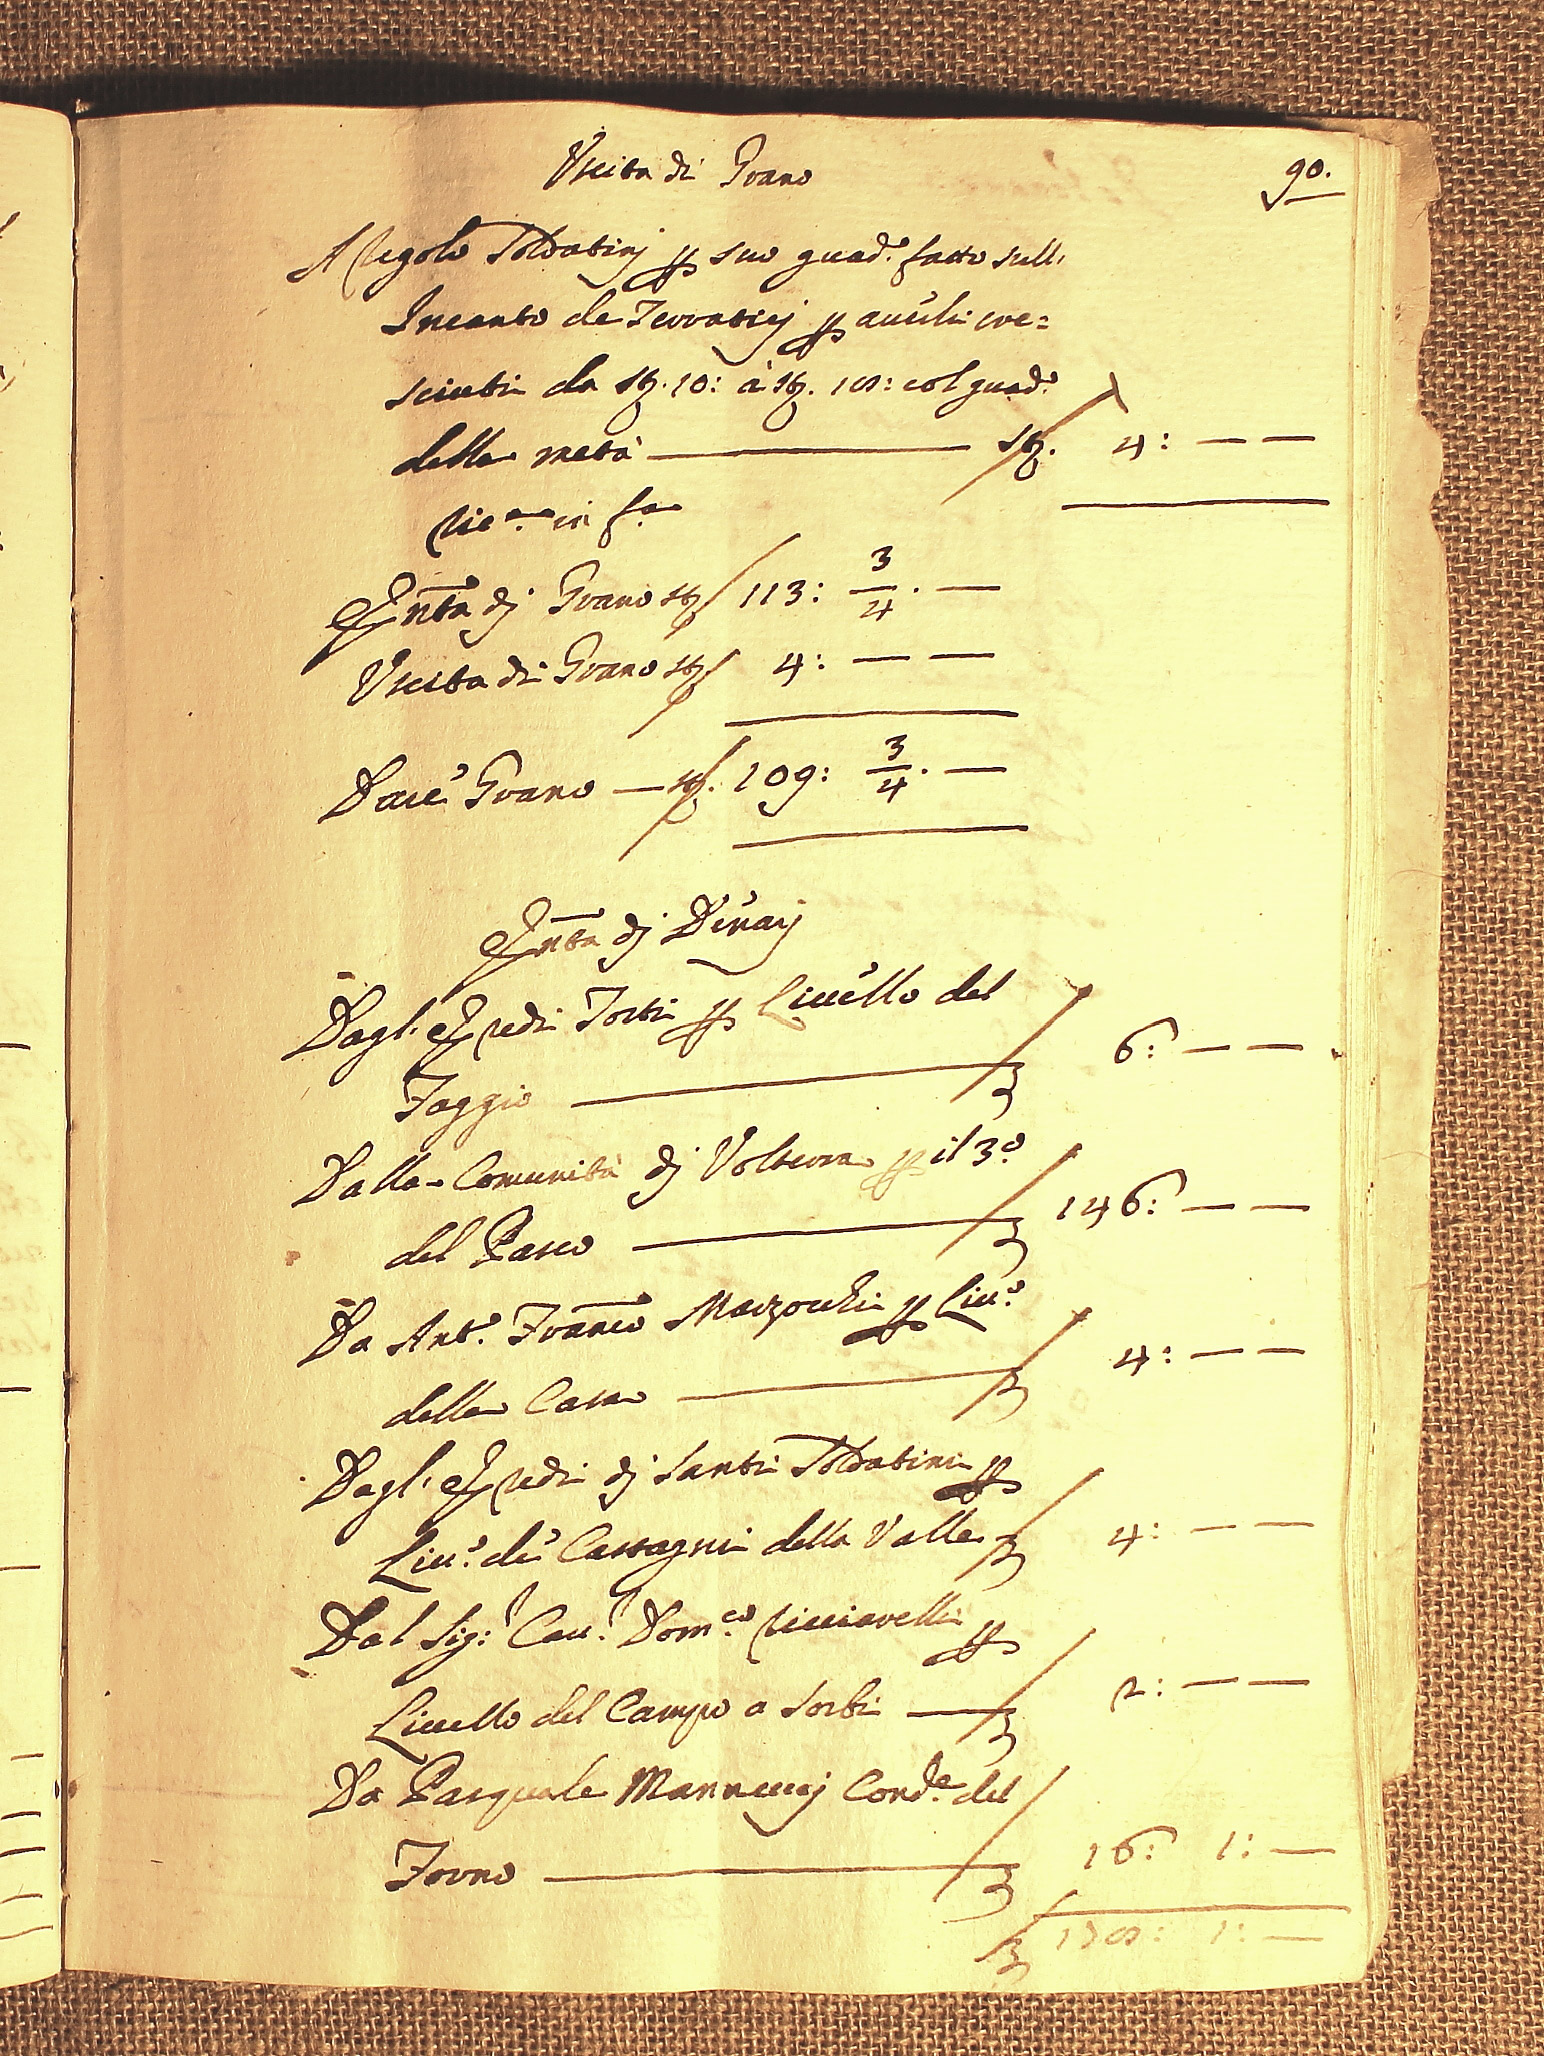 Uscita di Grano
90.
A Regolo Soldatinj p suo guad.o fatto sull'
Incanto de Terraticj p auerli cre=
sciuti da st. 10: à st. 18: col guad.o
della metà — st. 4: — —
Ric.ne in f.a
Entta dj Grano st 113: 3/4. —
Uscita di Grano st 4: — —
Daré Grano — st. 109: 3/4. —
Entta dj Denarj
Dagl'Eredi Torti p Liuéllo del
Faggio — 6: — —
Dalla Comunità dj Volterra p il 3.o
del Pasco — 146: — —
Da Ant.o Franco Marzocchi p Liu.o
della Casa — 4: — —
Dagl'Eredi dj Santi Soldatini p
Liu.o de' Castagni della Valle 4: — —
Dal Sig:r Cau.r Dom.co Ricciarelli p
Liuello del Campo a Sorbi — 2: — —
Da Pasquale Mannuccj Cond.e del
Forno — 16: 1: —
178: 1: —